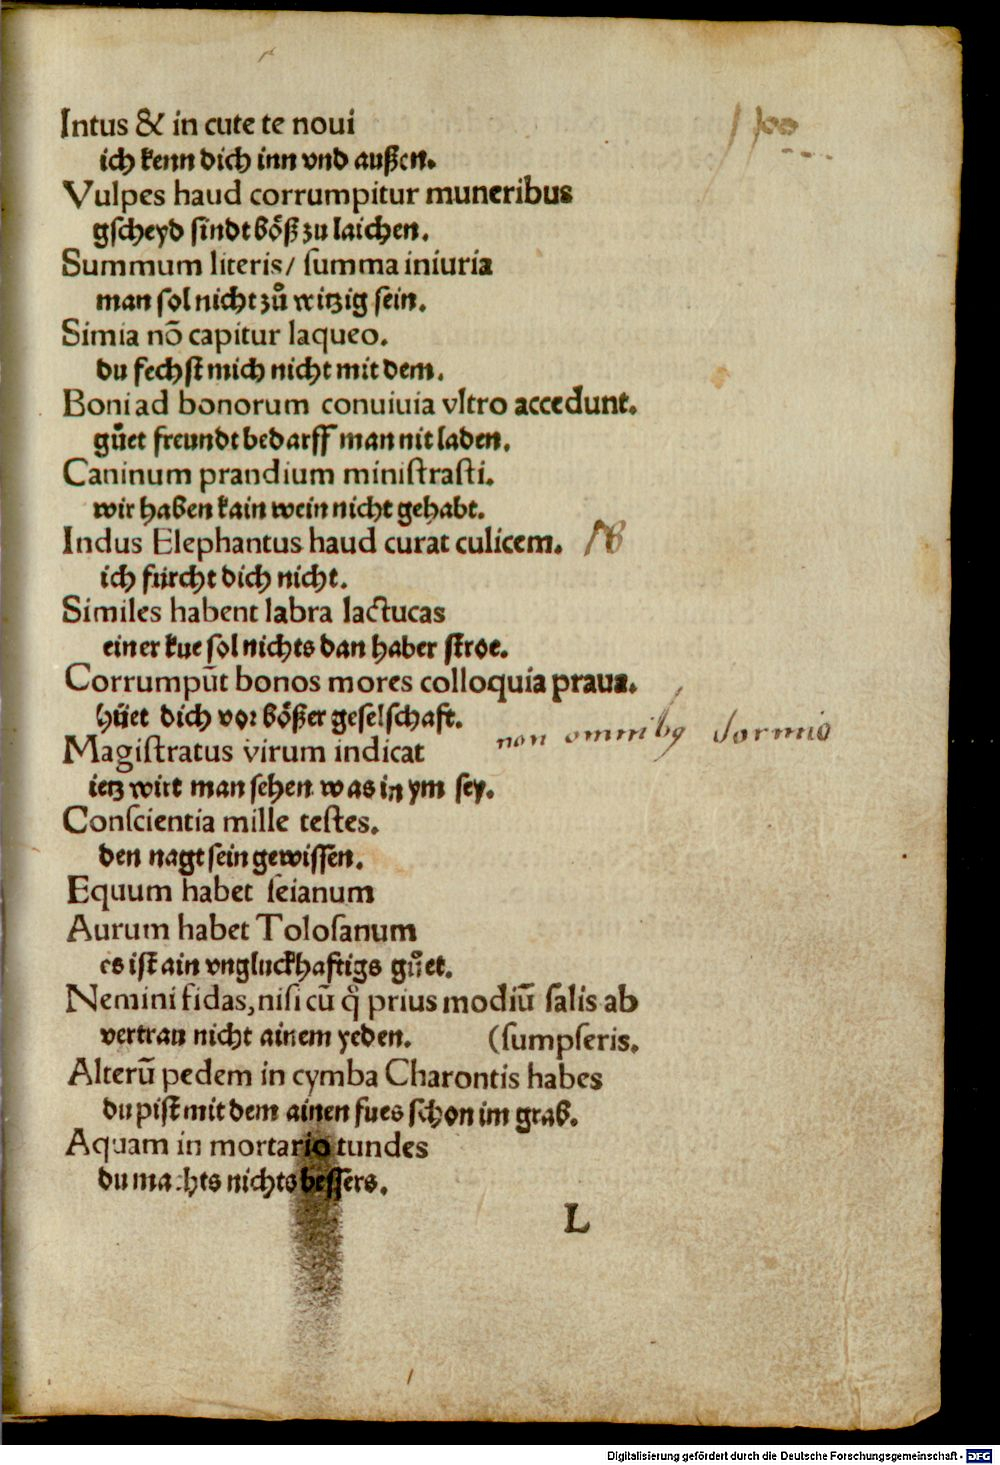 Intus & in cute te noui
ich kenn dich inn vnd außen.
Vulpes haud corrumpitur muneribus
gscheyd sindt bo̊ß zu laichen.
Summum literis/ summa iniuria
man sol nicht zů witzig sein.
Simia nō capitur laqueo.
du fechst mich nicht mit dem.
Boni ad bonorum conuiuia vltro accedunt.
gůet freundt bedarff man nit laden.
Caninum prandium ministrasti.
wir haben kain wein nicht gehabt.
Indus Elephantus haud curat culicem.
ich fürcht dich nicht.
Similes habent labra lactucas
einer kue sol nichts dan haber stroe.
Corrumpūt bonos mores colloquia praua.
hüet dich vor bo̊ßer geselschaft.
non omnibꝫ dormio
Magistratus virum indicat
ietz wirt man sehen was in ym sey.
Conscientia mille testes.
den nagt sein gewissen.
Equum habet seianum
Aurum habet Tolosanum
es ist ain vngluckhaftigs gůet.
Nemini fidas, nisi cū q̊ prius modiū salis ab
vertrau nicht ainem yeden. (sumpseris.
Alterū pedem in cymba Charontis habes
du pist mit dem ainen fues schon im grab.
Aquam in mortario tundes
du machts nichts bessers.
L
Digitalisierung gefördert durch die Deutsche Forschungsgemeinschaft - DFG